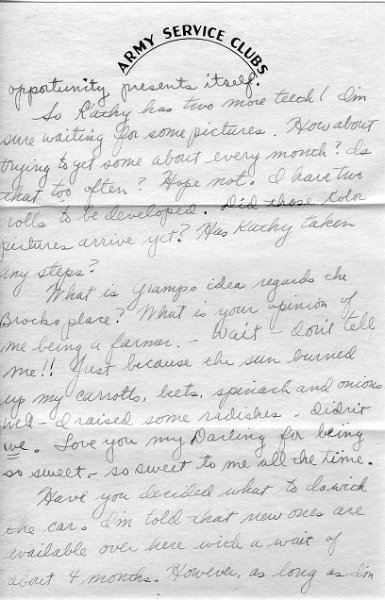 ARMY SERVICE CLUBS
opportunity presents itself.
So Kathy has two more teeth! I'm
sure waiting for some pictures. How about
trying to get some about every month? Is
that too often? Hope not. I have two
rolls to be developed. Did those Kolor
pictures arrive yet? Has Kathy taken
any steps?
What is Gramps idea regards the
Brocks place? What is your opinion of
me being a farmer. - Wait - don't tell
me!! Just because the sun burned
up my carrotts, beets, spinach and onions
well - I raised some radishes. Didn't
we. Love you my Darling for being
so sweet, - so sweet to me all the time.
Have you decided what to do with
the car. I'm told that new ones are
available over here with a wait of
about 4 months. However, as long as I'm